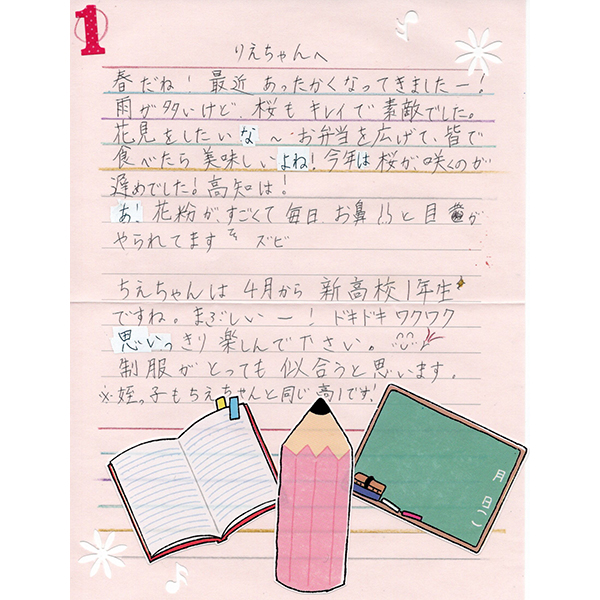 1
りえちゃんへ
春だね！最近 あったかくなってきましたー！
雨が多いけど 桜も キレイで 素敵でした。
花見をしたいな ～ お弁当を広げて、皆で
食べたら 美味しいよね！今年は 桜が、咲くのが
遅めでした！高知は！
あ！花粉が、すごくて 毎日 お鼻 と 目 が
やられてます ズビ
ちえちゃんは 4月から 新高校1年生
ですね。まぶしいー！ ドキドキ ワクワク
思いっきり 楽しんで下さい。
制服が とっても 似合うと思います。
※姪っ子もちえちゃんと同じ高1です！
月
日( )